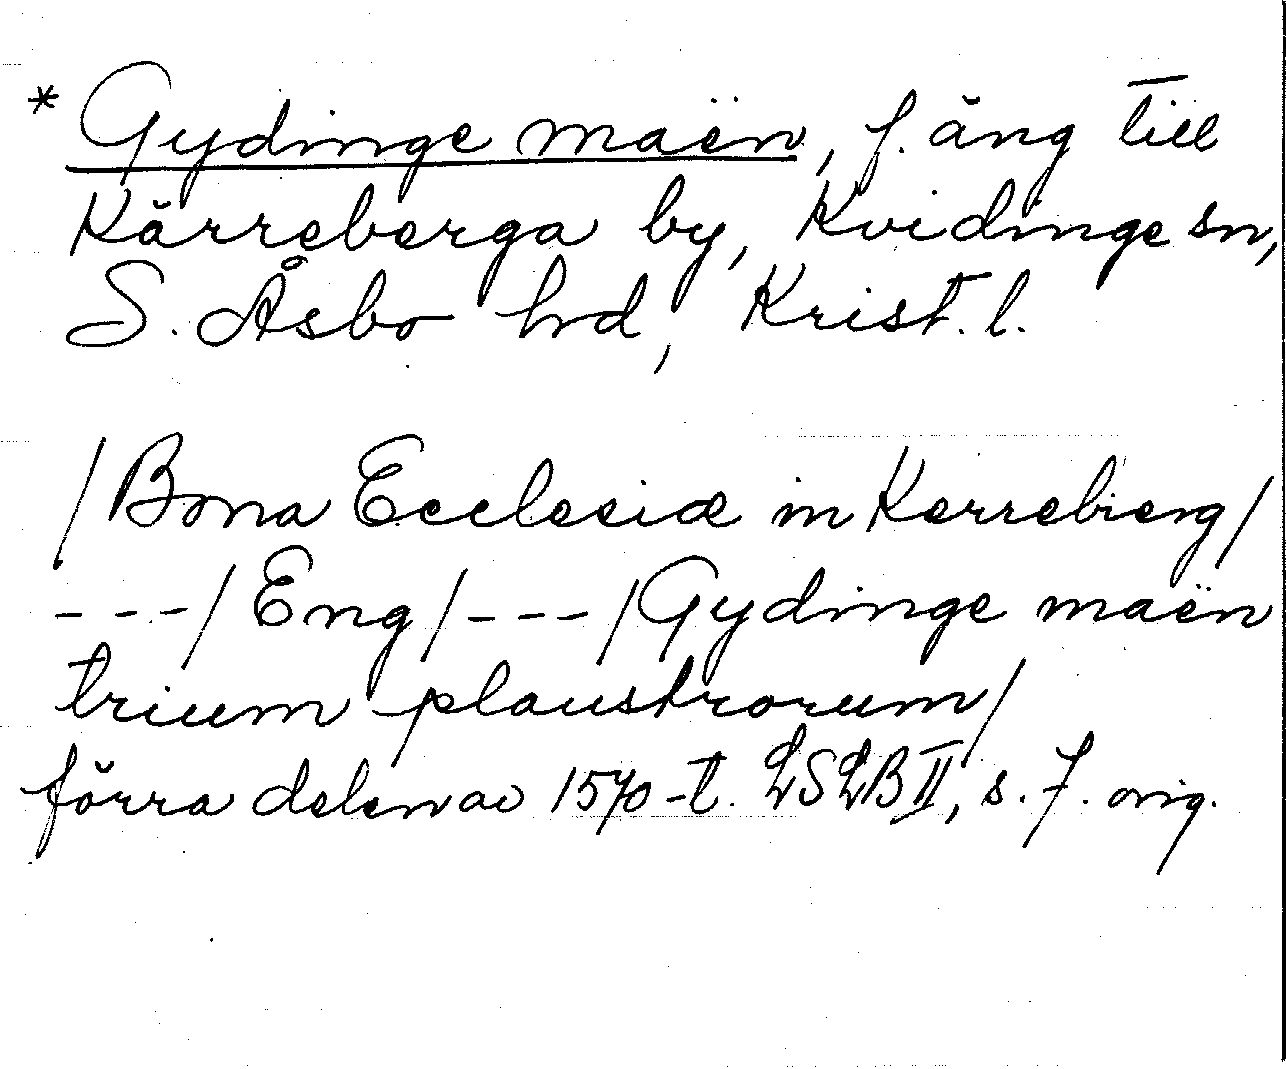 * Gydinge maën, f. äng till
Kärreberga by, Kvidinge sn,
S. Åsbo hd, Krist. l.
/Bona Ecclesiæ in Kerrebierg/
---/Eng/---/Gydinge maën
trium plaustrorum/
förra delen av 1570-t. LSLB II, s. 7. orig.